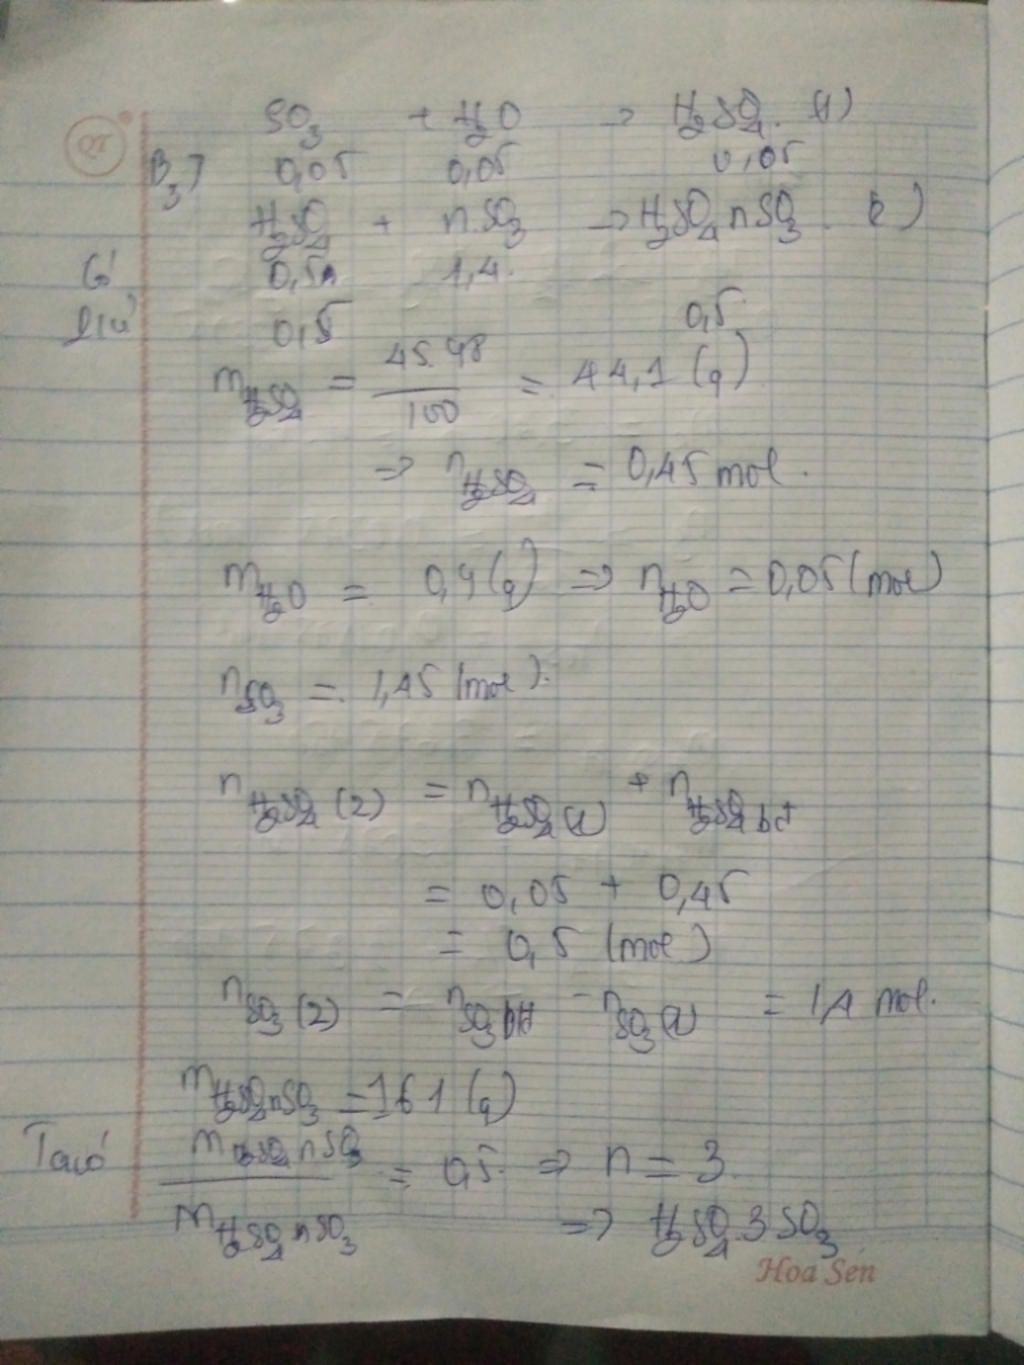 SO3 + H2O → H2SO4 (1)
B3) 0,05 0,05 0,05
H2SO4 + nSO3 → H2SO4 nSO3 (2)
0,5 1,4
0,5 0,5
mH2SO4 = 45.98/100 = 44,1 (g)
=> nH2SO4 = 0,45 mol.
mH2O = 0,9 (g) => nH2O = 0,05 (mol)
nSO3 = 1,45 (mol).
nH2SO4 (2) = nH2SO4 (1) + nH2SO4 bđ
= 0,05 + 0,45
= 0,5 (mol)
nSO3 (2) = nSO3 bđ - nSO3 (1) = 1,4 mol.
mH2SO4nSO3 = 161 (g)
Ta có mH2SO4nSO3/MH2SO4nSO3 = 0,5 => n = 3
=> H2SO4.3SO3
Hoa Sen